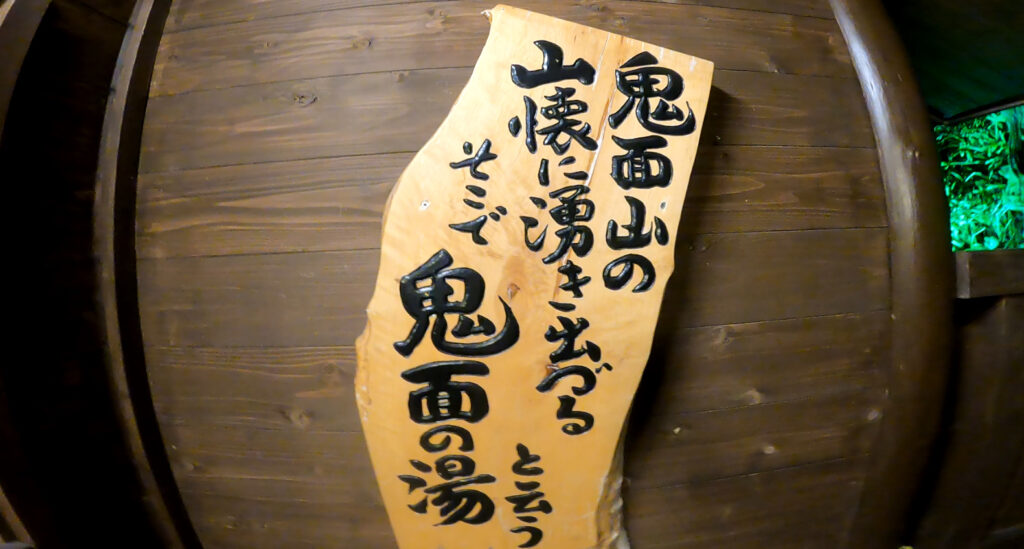 鬼面山の
山懐に湧き出づる
そこで
鬼面の湯
と云う